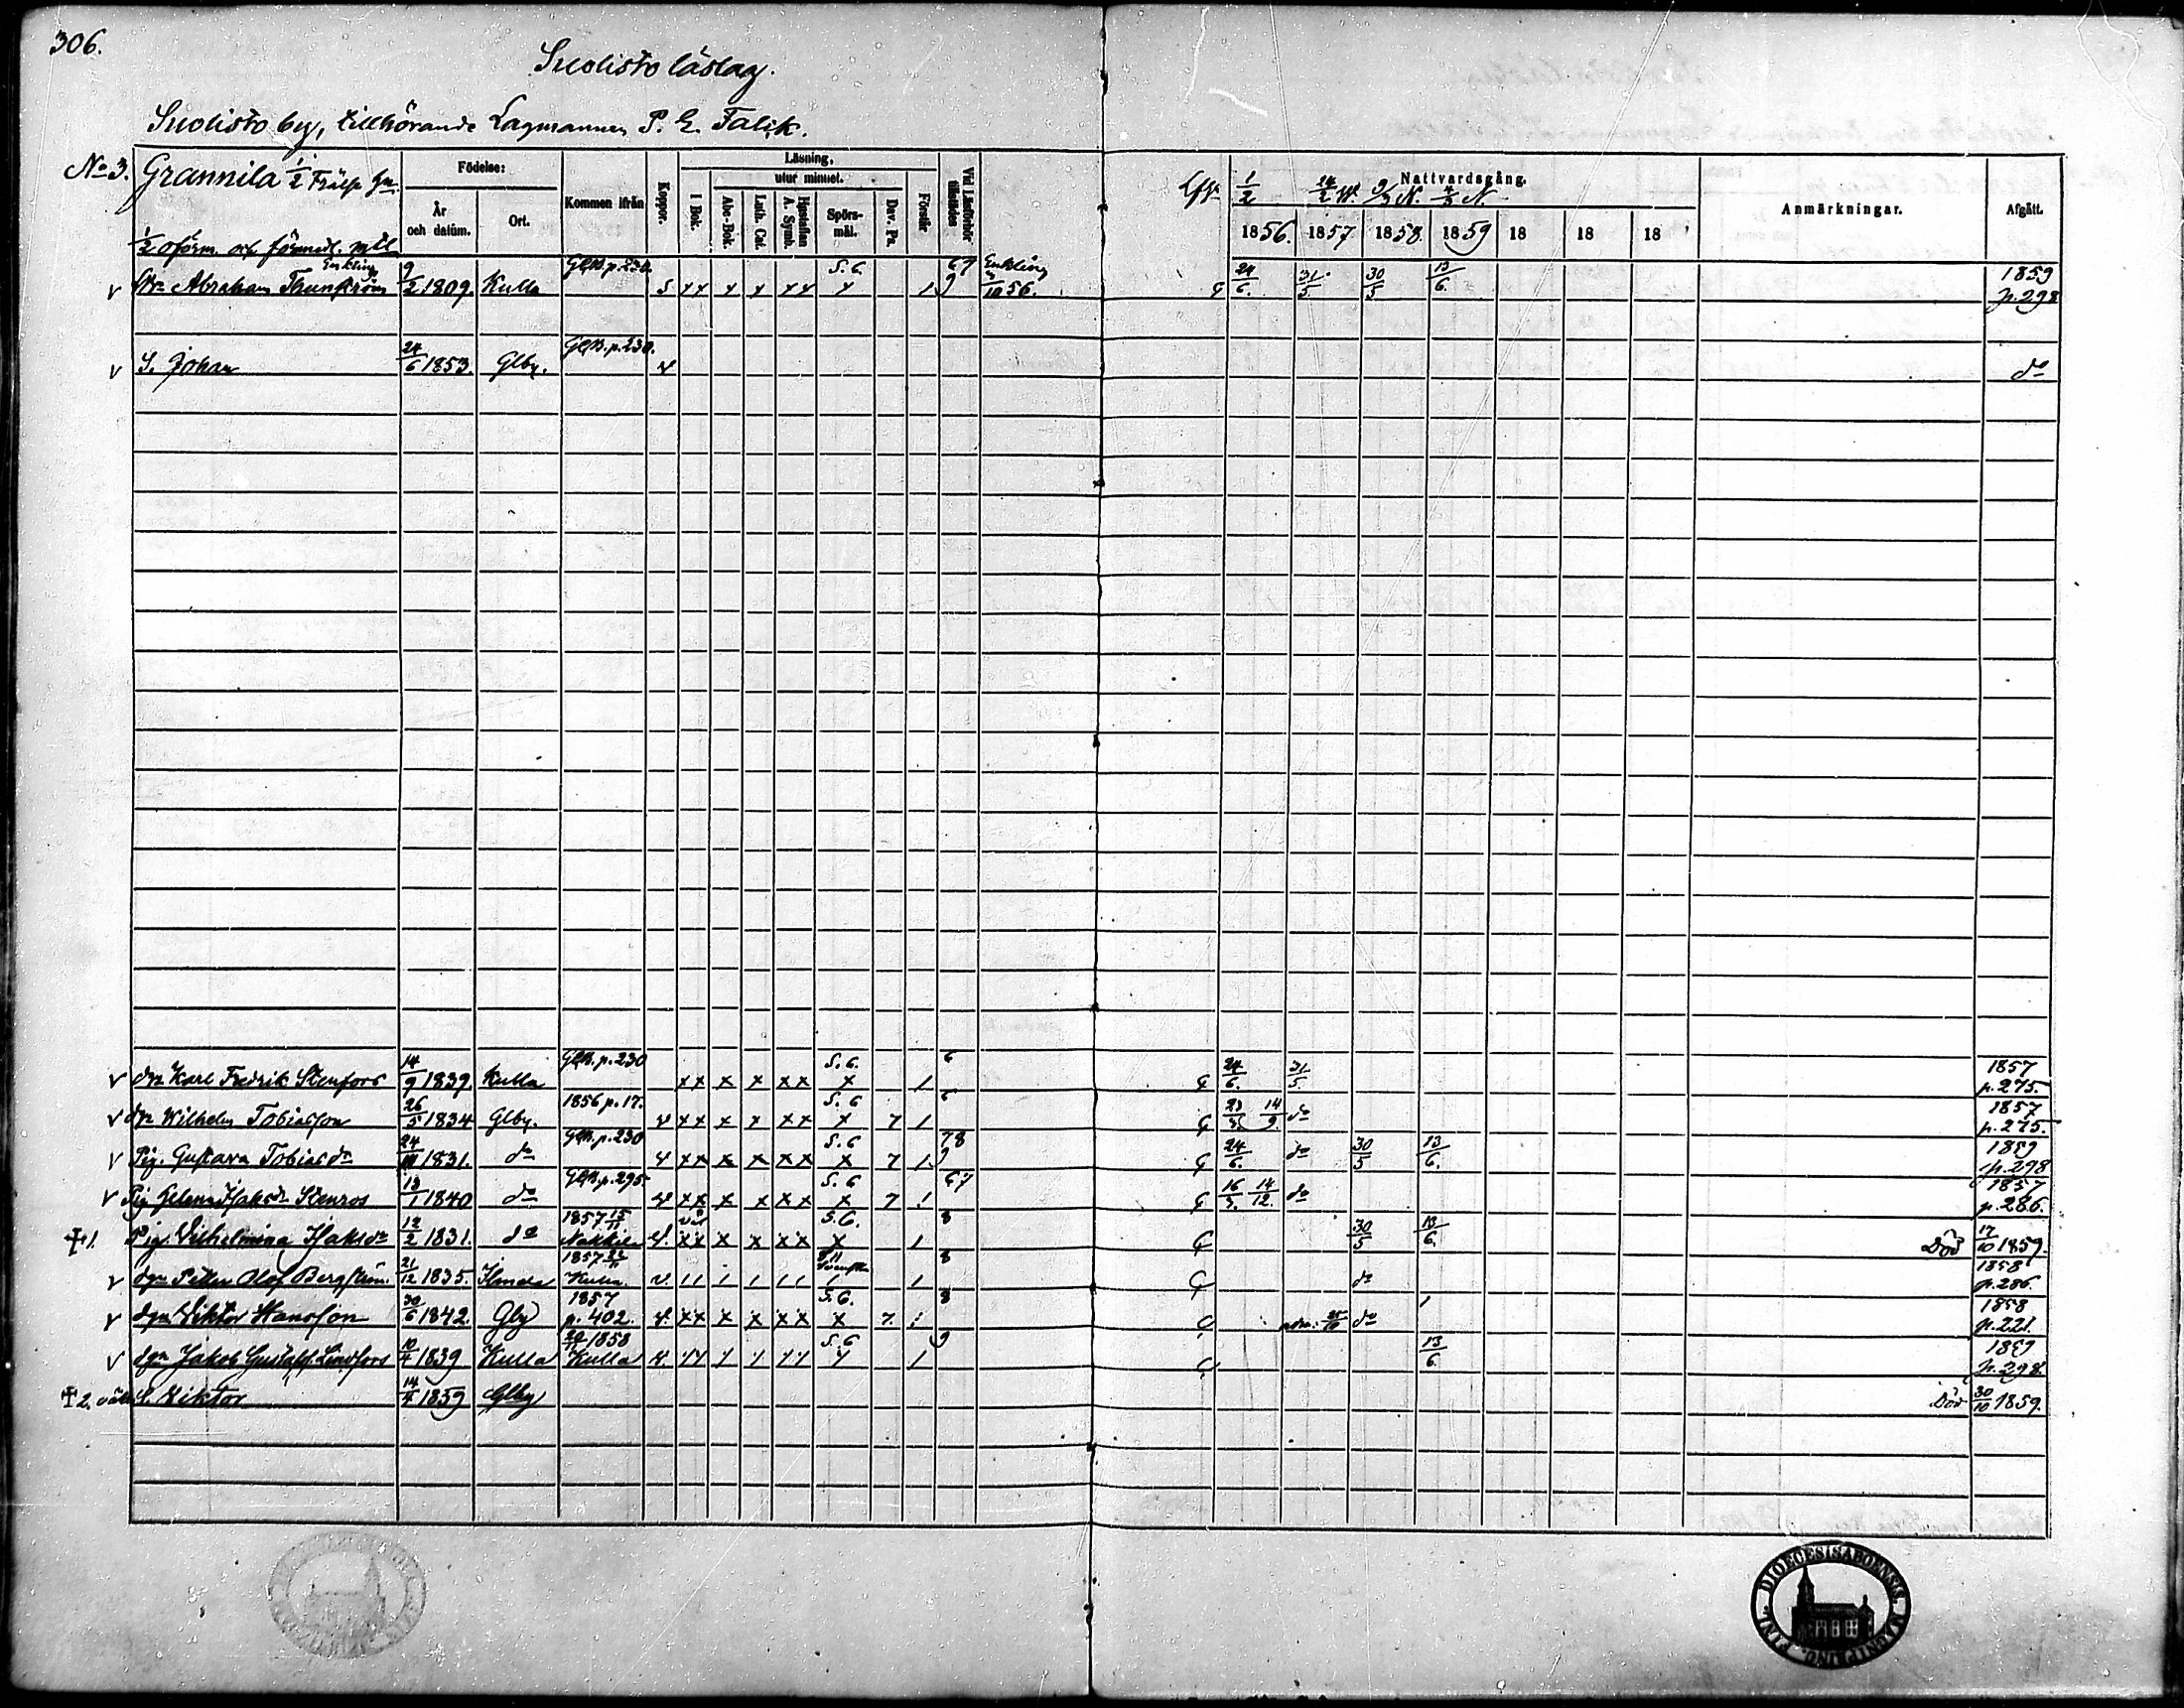 306.
Suolisto läslag.
Suolisto by, tillhörande Lagmannen P. E. Falck.
No 3. Grannila 1/2 Frälse
1/2 oförm. och förmedl. mtl
Födelse:
År och datum.
Ort.
Kommen ifrån
Koppor.
Läsning,
I Bok.
utur minnet.
Abc-Bok.
Luth. Cat.
Hustaflan A. Symb.
Spörsmål.
Dav. Ps.
Förstår
Vid Läsförhör tillstädes
Nattvardsgång.
1856. 1857 1858. 1859 18 18 18
Anmärkningar.
Afgått.
v Abraham Thunström Enkling 9/2 1809. Kulla p. 230. S. 6. 67 9 Enkling 10 56. 24/6. 31/5. 30/5 13/6. 1859 p. 298
v S. Johan 24/6 1853. Glby. p. 230. v do
v dgn Karl Fredrik Stenfors 14/9 1839. Kulla p. 230 x x x x x x S. 6. x / 6 24/6. 31/5. 1857 p. 275.
v dgn Wilhelm Tobiasson 26/5 1834 Glby. 1856 p. 17. v x x x x x x S. 6 x 7 / 6 14/9. do 1857 p. 275.
v Pig. Gustava Tobiasdr 24 1831. do p. 230 v x x x x x x S. 6 x 7 / 78 9 24/6. do 30/5 13/6. 1859 p. 298
v Pig Helena Isaksdr Stenros 13/1 1840 do p. 295 v x x x x x x S. 6 x 7 / 67 16 14/12. do 1857 p. 286.
†1. Pig. Vilhelmina Isaksdr 12/2 1831. do 1857 15/11 Nakkila v. x x x x x x S. 6. x / 8 30/5 13/6. Död 17/10 1859.
v dgn Petter Olof Bergström. 21/12 1835. 1857 Kulla. v. / / / / / / / / 8 do 1858 p. 286.
v dgn Viktor Hansson 30/6 1842. Glby 1857 p. 402. v. x x x x x x S. 6. x 7. / 8 adm. 25/10 do 1858 p. 221.
v dgn Jakob Gustaf Lindfors 10/4 1839 Kulla 1858 Kulla v. S. 6 / 9 13/6. 1859 p. 298.
†2. S. Viktor 14/4 1859 Glby Död 30/10 1859.
DIOECESIS ABOENSIS. MAGNI PRINC. FINL.